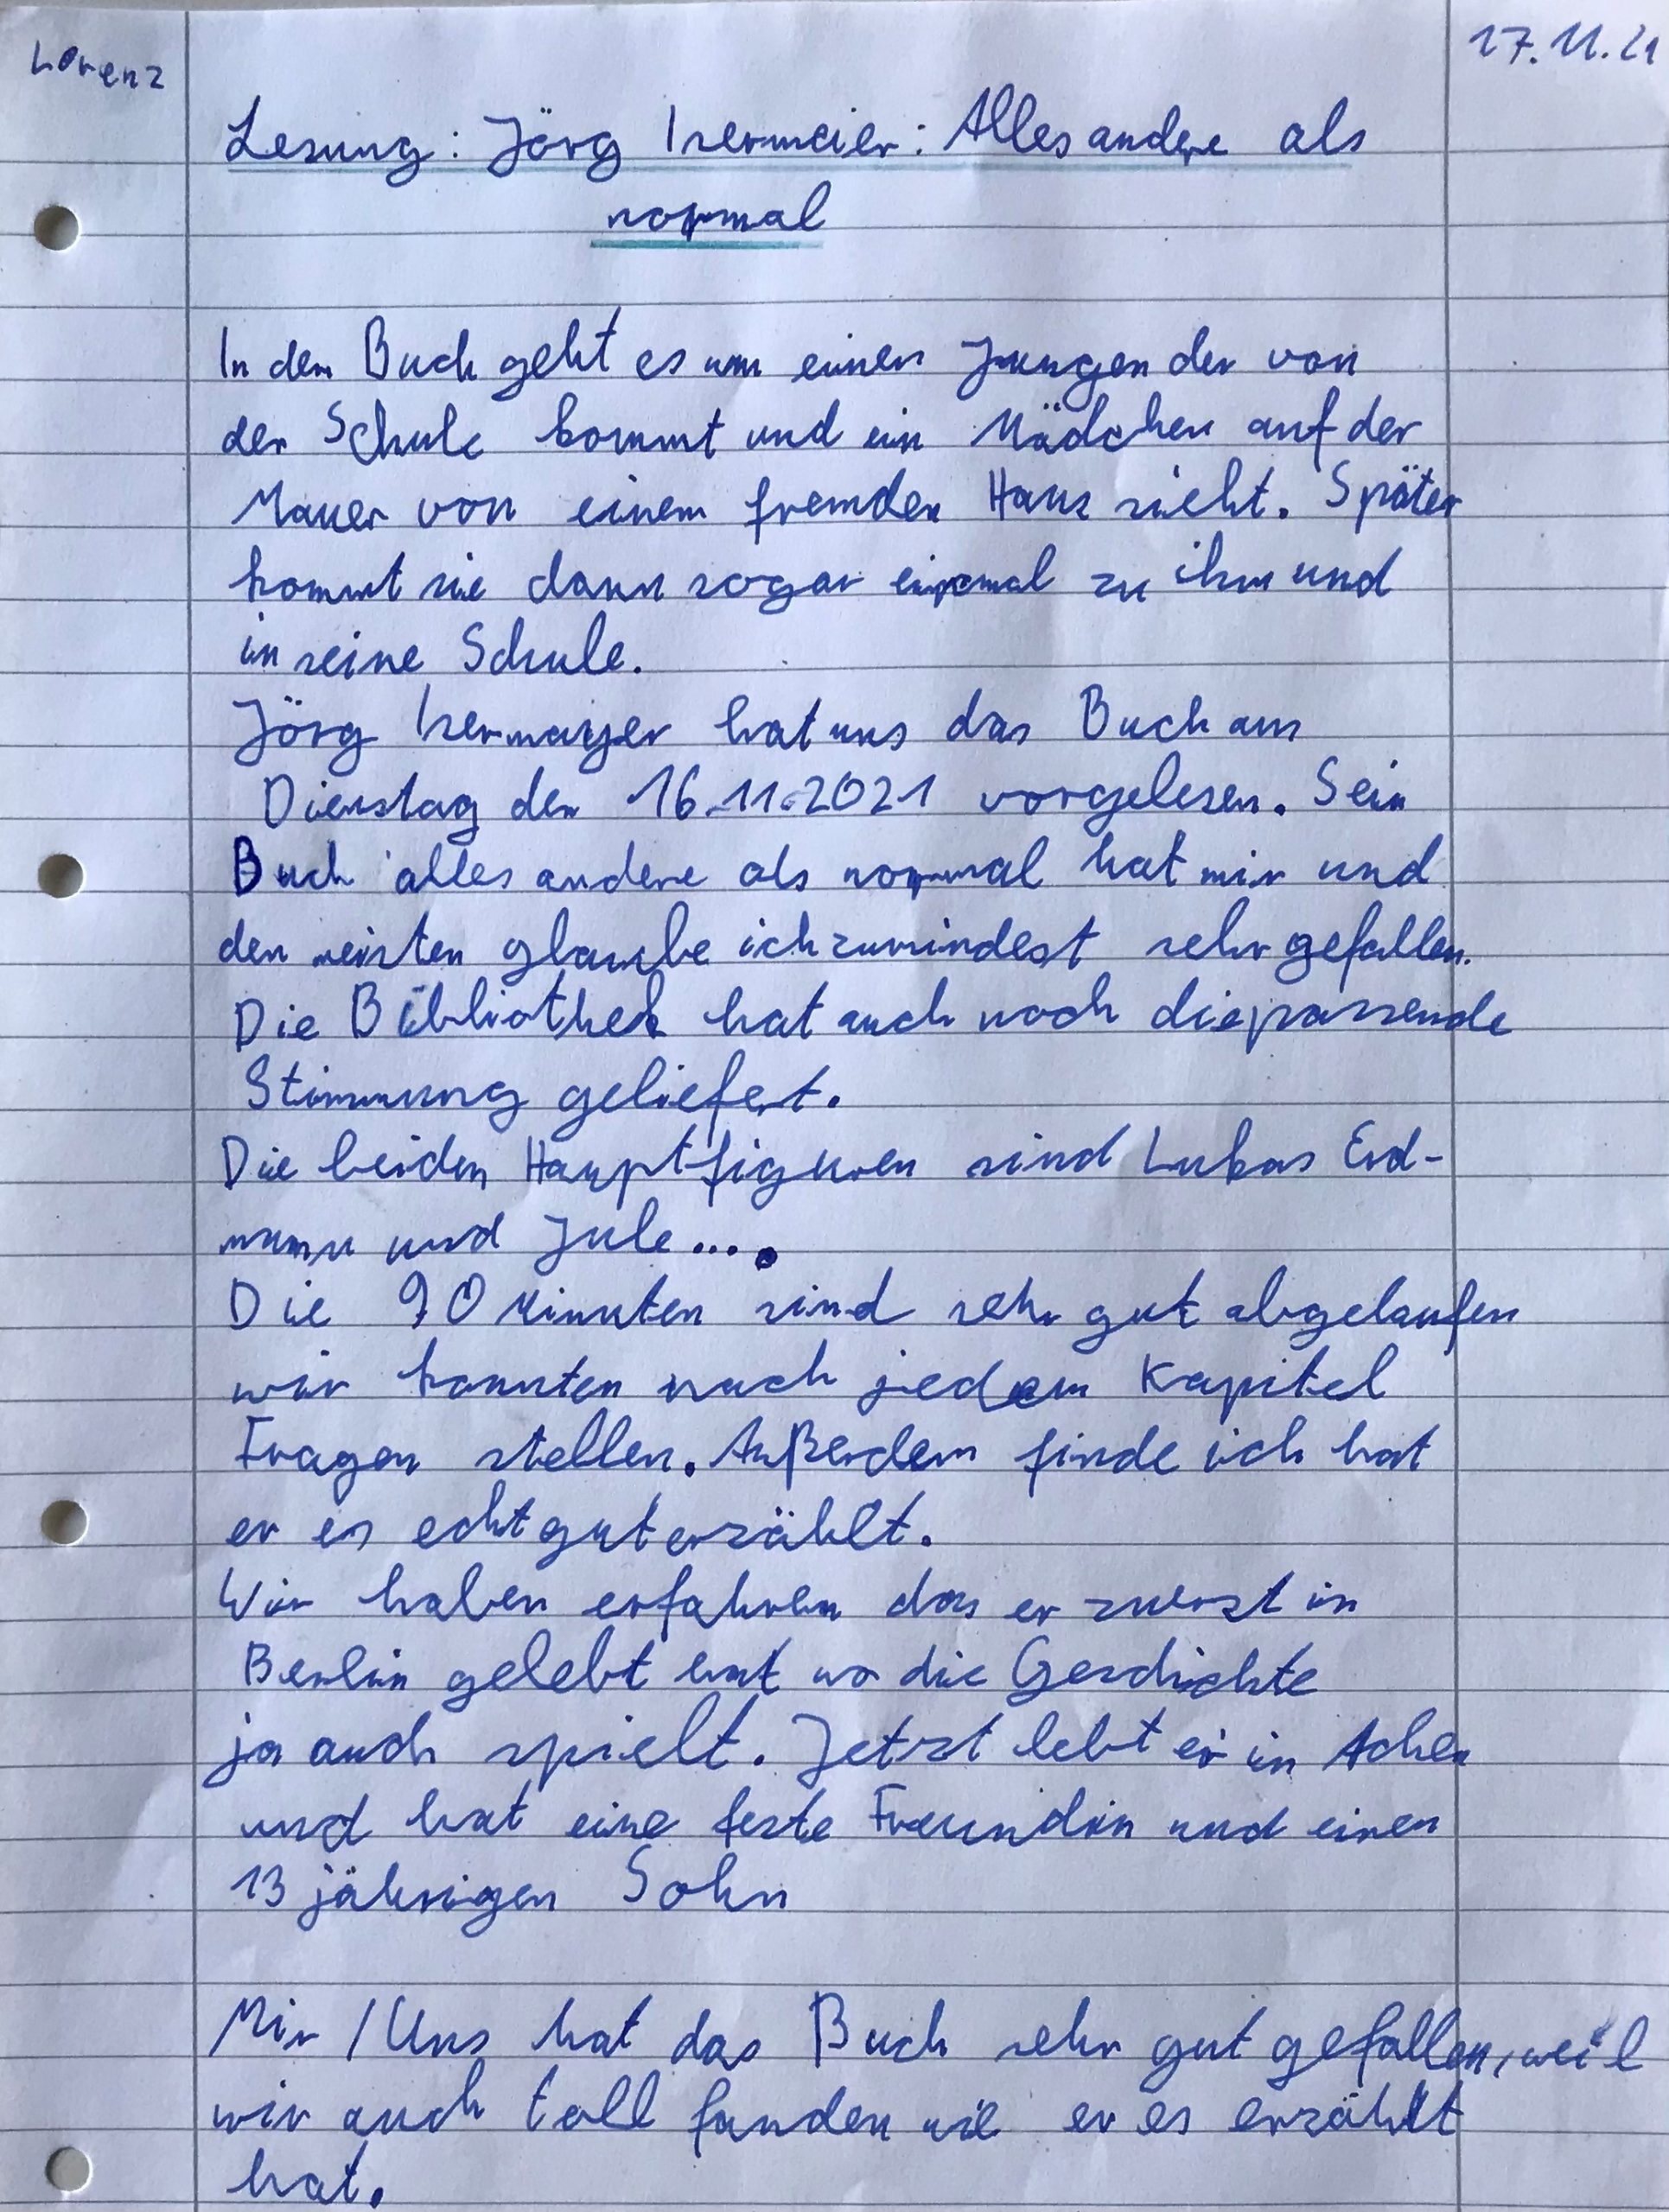 Lorenz
17.11.21
Lesung: Jörg Isermeier: Alles andere als
normal
In dem Buch geht es um einen Jungen der von
der Schule kommt und ein Mädchen auf der
Mauer von einem fremden Haus sieht. Später
kommt sie dann sogar einmal zu ihm und
in seine Schule.
Jörg Isermayer hat uns das Buch am
Dienstag den 16.11.2021 vorgelesen. Sein
Buch alles andere als normal hat mir und
den meisten glaube ich zumindest sehr gefallen.
Die Bibliothek hat auch noch die passende
Stimmung geliefert.
Die beiden Hauptfiguren sind Lukas Erd-
mann und Jule....
Die 90 Minuten sind sehr gut abgelaufen
wir konnten nach jedem Kapitel
Fragen stellen. Außerdem finde ich hat
er es echt gut erzählt.
Wir haben erfahren das er zuerst in
Berlin gelebt hat wo die Geschichte
ja auch spielt. Jetzt lebt er in Achen
und hat eine feste Freundin und einen
13 jährigen Sohn
Mir / Uns hat das Buch sehr gut gefallen, weil
wir auch toll fanden wie er es erzählt
hat.